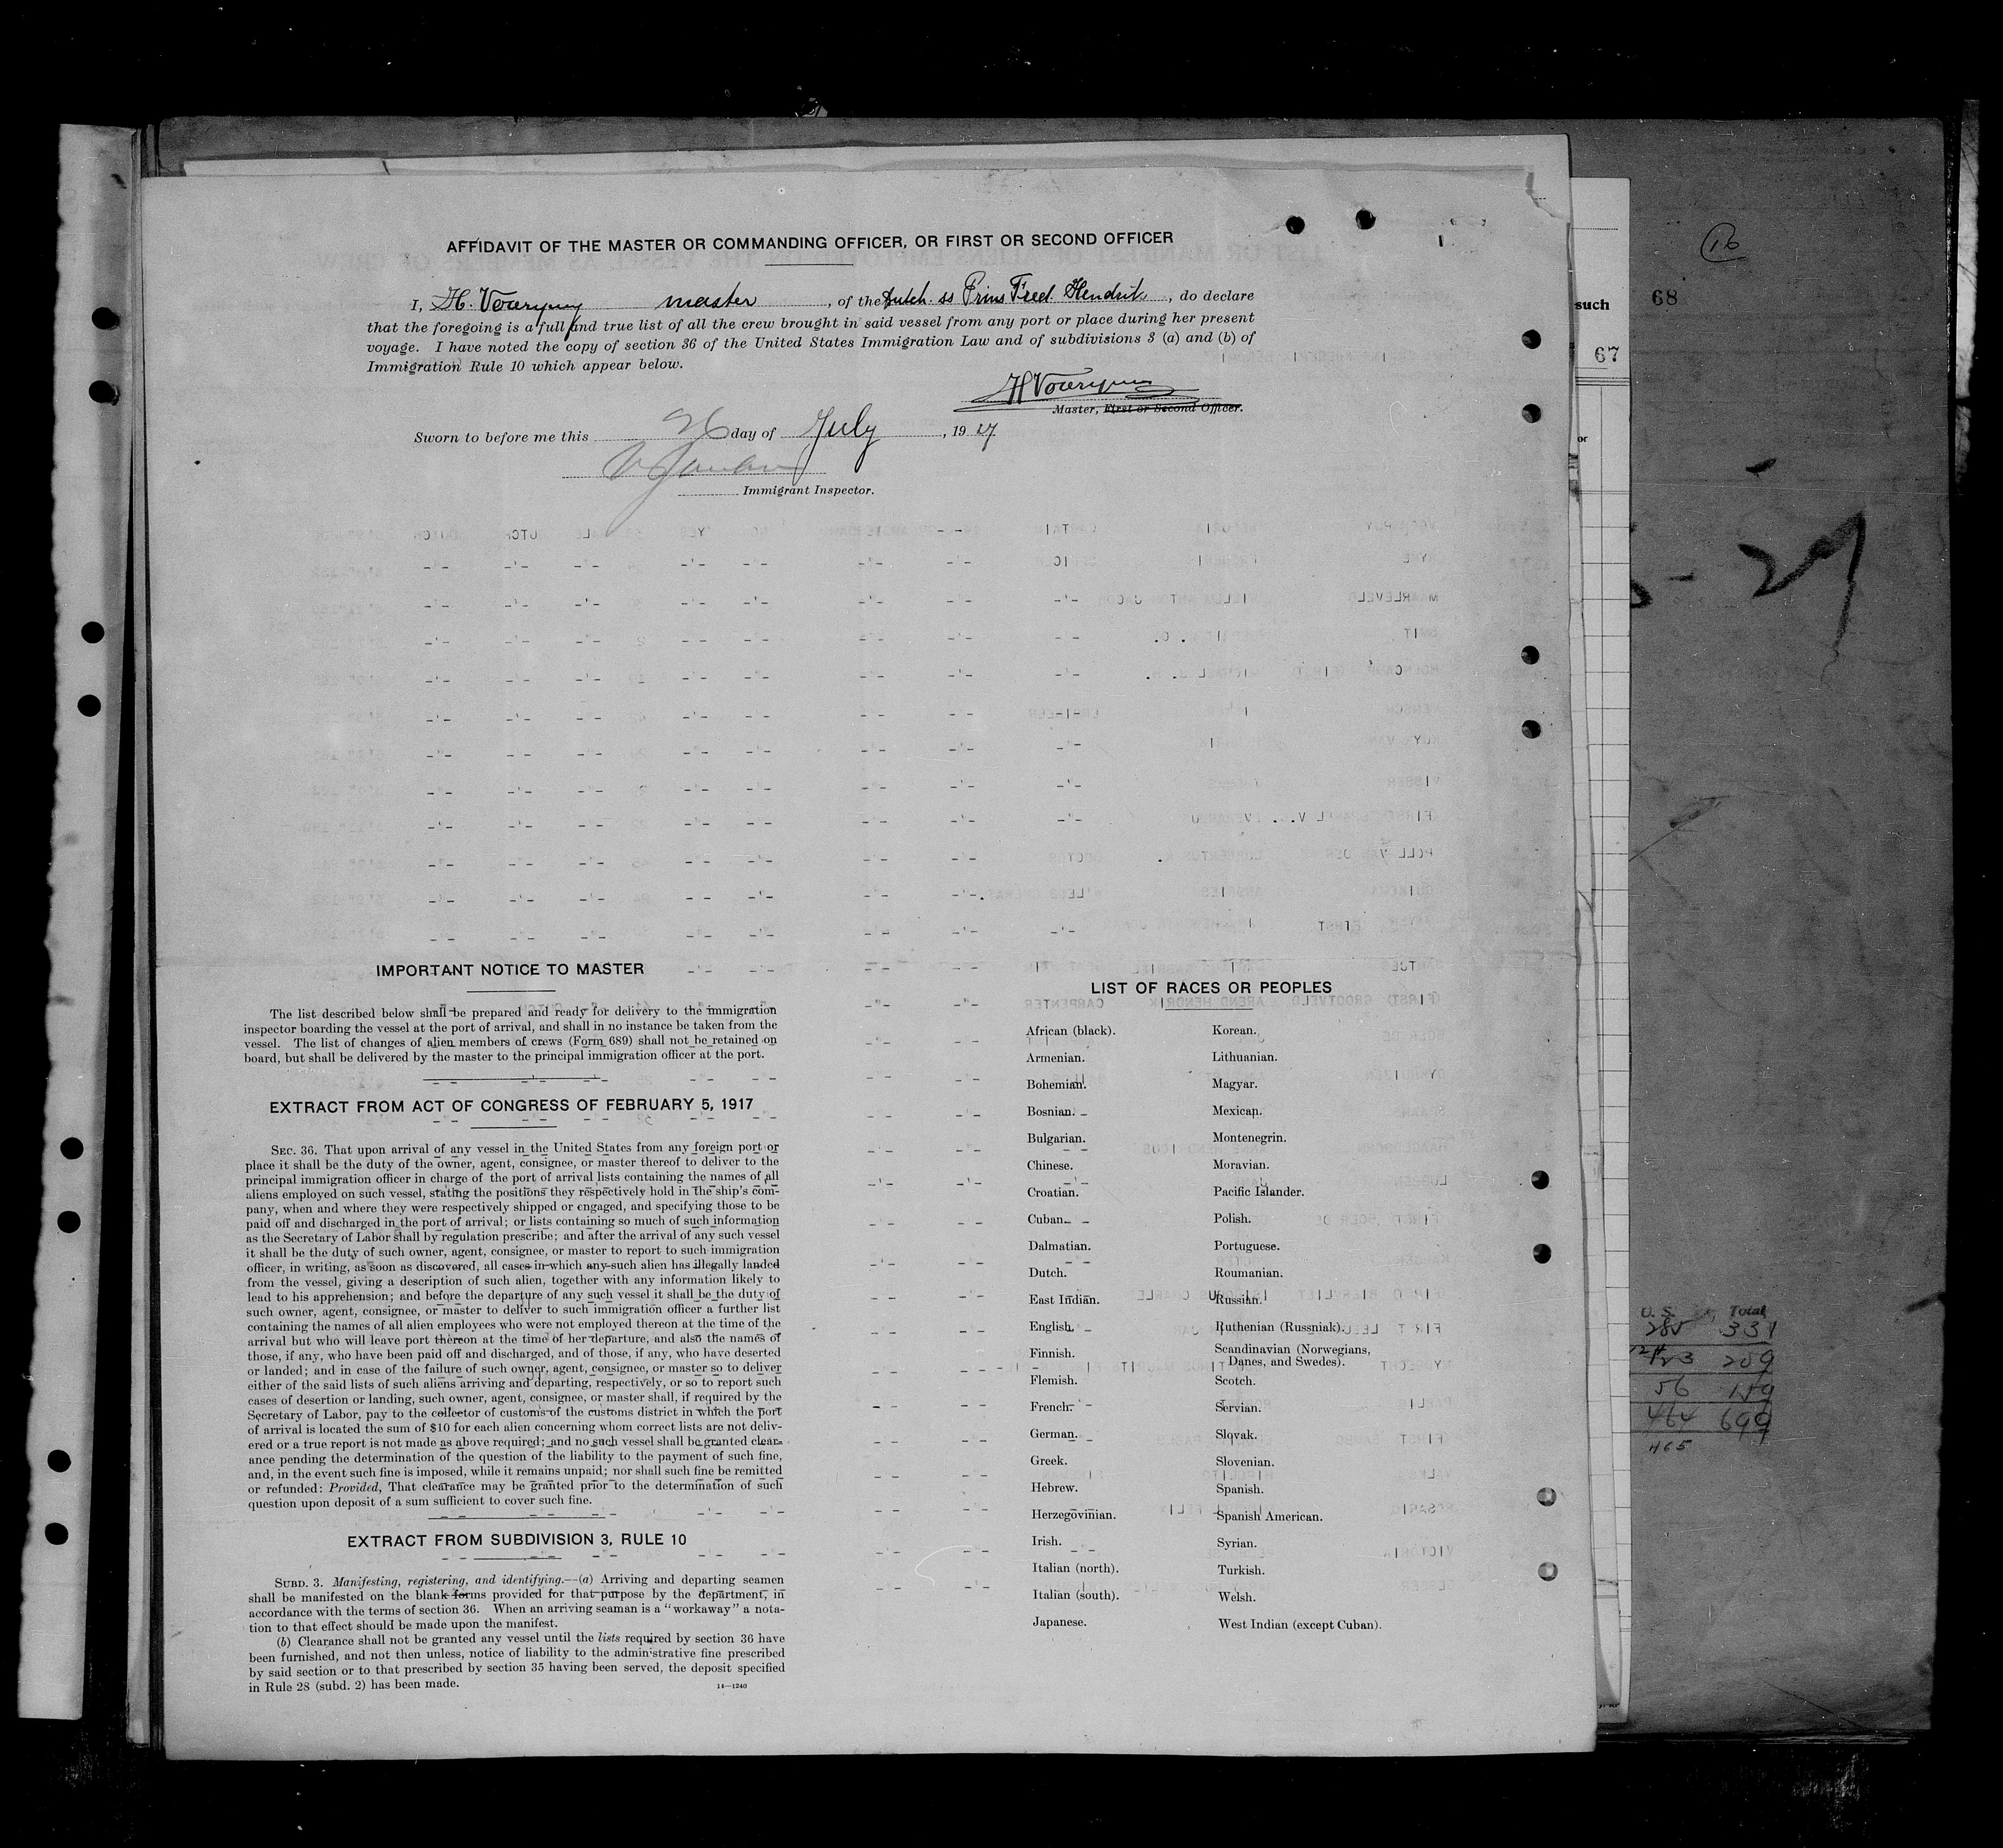 AFFIDAVIT OF THE MASTER OR COMMANDING OFFICER, OR FIRST OR SECOND OFFICER
I, H. master, of the Dutch. ss Prins Fred. Hendrik, do declare
that the foregoing is a full and true list of all the crew brought in said vessel from any port or place during her present
voyage. I have noted the copy of section 36 of the United States Immigration Law and of subdivisions 3 (a) and (b) of
Immigration Rule 10 which appear below.
Master, First or Second Officer.
Sworn to before me this 26 day of July, 1927
Immigrant Inspector.
IMPORTANT NOTICE TO MASTER
The list described below shall be prepared and ready for delivery to the immigration
inspector boarding the vessel at the port of arrival, and shall in no instance be taken from the
vessel. The list of changes of alien members of crews (Form 689) shall not be retained on
board, but shall be delivered by the master to the principal immigration officer at the port.
EXTRACT FROM ACT OF CONGRESS OF FEBRUARY 5, 1917
SEC. 36. That upon arrival of any vessel in the United States from any foreign port or
place it shall be the duty of the owner, agent, consignee, or master thereof to deliver to the
principal immigration officer in charge of the port of arrival lists containing the names of all
aliens employed on such vessel, stating the positions they respectively hold in the ship's com-
pany, when and where they were respectively shipped or engaged, and specifying those to be
paid off and discharged in the port of arrival; or lists containing so much of such information
as the Secretary of Labor shall by regulation prescribe; and after the arrival of any such vessel
it shall be the duty of such owner, agent, consignee, or master to report to such immigration
officer, in writing, as soon as discovered, all cases in which any such alien has illegally landed
from the vessel, giving a description of such alien, together with any information likely to
lead to his apprehension; and before the departure of any such vessel it shall be the duty of
such owner, agent, consignee, or master to deliver to such immigration officer a further list
containing the names of all alien employees who were not employed thereon at the time of the
arrival but who will leave port thereon at the time of her departure, and also the names of
those, if any, who have been paid off and discharged, and of those, if any, who have deserted
or landed; and in case of the failure of such owner, agent, consignee, or master so to deliver
either of the said lists of such aliens arriving and departing, respectively, or so to report such
cases of desertion or landing, such owner, agent, consignee, or master shall, if required by the
Secretary of Labor, pay to the collector of customs of the customs district in which the port
of arrival is located the sum of $10 for each alien concerning whom correct lists are not deliv-
ered or a true report is not made as above required; and no such vessel shall be granted clear-
ance pending the determination of the question of the liability to the payment of such fine,
and, in the event such fine is imposed, while it remains unpaid; nor shall such fine be remitted
or refunded: Provided, That clearance may be granted prior to the determination of such
question upon deposit of a sum sufficient to cover such fine.
EXTRACT FROM SUBDIVISION 3, RULE 10
SUBD. 3. Manifesting, registering, and identifying.—(a) Arriving and departing seamen
shall be manifested on the blank forms provided for that purpose by the department, in
accordance with the terms of section 36. When an arriving seaman is a "workaway" a nota-
tion to that effect should be made upon the manifest.
(b) Clearance shall not be granted any vessel until the lists required by section 36 have
been furnished, and not then unless, notice of liability to the administrative fine prescribed
by said section or to that prescribed by section 35 having been served, the deposit specified
in Rule 28 (subd. 2) has been made.
14—1240
LIST OF RACES OR PEOPLES
African (black).
Armenian.
Bohemian.
Bosnian.
Bulgarian.
Chinese.
Croatian.
Cuban.
Dalmatian.
Dutch.
East Indian.
English.
Finnish.
Flemish.
French.
German.
Greek.
Hebrew.
Herzegovinian.
Irish.
Italian (north).
Italian (south).
Japanese.
Korean.
Lithuanian.
Magyar.
Mexican.
Montenegrin.
Moravian.
Pacific Islander.
Polish.
Portuguese.
Roumanian.
Russian.
Ruthenian (Russniak).
Scandinavian (Norwegians,
Danes, and Swedes).
Scotch.
Servian.
Slovak.
Slovenian.
Spanish.
Spanish American.
Syrian.
Turkish.
Welsh.
West Indian (except Cuban).
such
67
or
16
68
29
U. S. Total
285 331
123 209
56 159
464 699
465